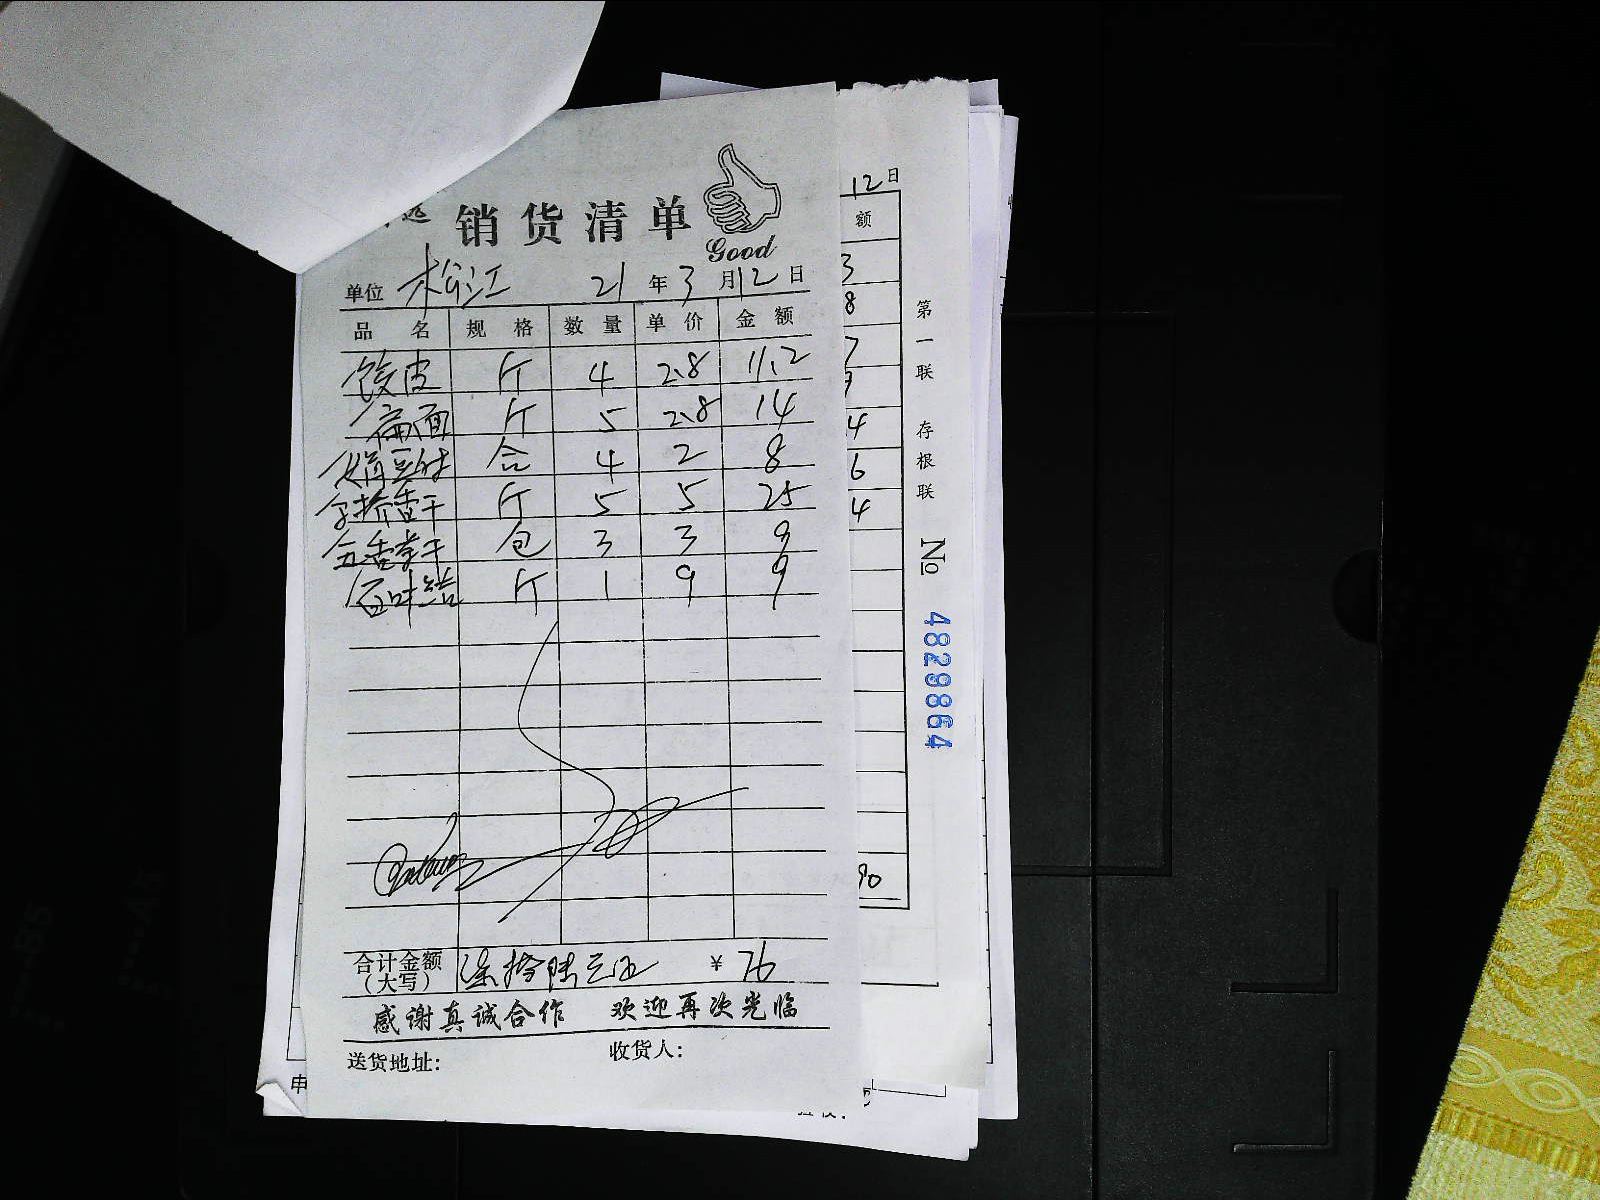 销货清单
Good
单位 松江 21年3月12日
品名 规格 数量 单价 金额
饺皮 斤 4 2.8 11.2
扁面 斤 5 2.8 14
合 4 2 8
香干 斤 5 5 25
五香 干 包 3 3 9
百叶结 斤 1 9 9
合计金额（大写） 陆元正 ¥ 76
感谢真诚合作 欢迎再次光临
送货地址: 收货人:
12日
额
3
8
7
4
6
4
90
第一联 存根联 № 4829864
申